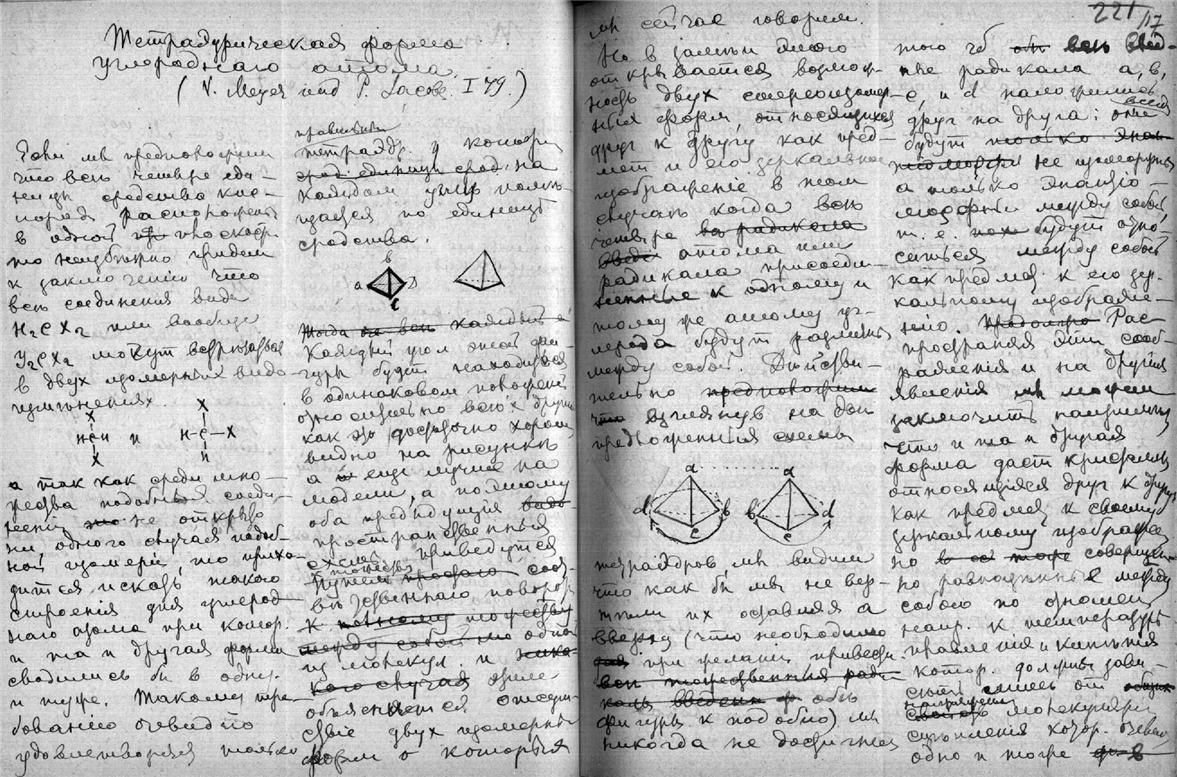 Тетраэдрическая форма
углероднаго атома.
(V. Meyer und P. Jacob. I 79.)
Если мы предположим
что все четыре еди-
ницы сродства кис-
лорода расположены
в одной плоскости
то неизбежно придем
к заключению что
все соединения вида
H₂CX₂ или вообще
Y₂CX₂ могут встречаться
в двух изомерных видо-
изменениях
X X
H-C-H и H-C-X
X H
а так как среди мно-
жества подобных соеди-
нений не открыто
ни одного случая подоб-
ной изомерии, то прихо-
дится искать такого
строения для углерод-
наго атома при котор.
и та и другая форма
сводились бы в одну
и туже. Такому тре-
бованию очевидно
удовлетворяет только
правильный
тетраэдр, у котораго
на
каждом углу поме-
щается по единице
сродства.
a в D c
Тогда не все каждый а
Каждый угол этой фи-
гуры будет находиться
в одинаковом положении
относительно всех других
как это достаточно хорошо
видно на рисунке
а еще лучше на
модели, а поэтому
оба предыдущия
пространственныя
схемы приведутся
путем простого соот-
ветственнаго поворота
к тождеству
между собой
из молекул. и
этим
объясняется отсут-
ствие двух изомерных
форм о которых
221/17
мы сейчас говорим.
Но в замен этого
открывается возмож-
ность двух стереоизомер-
ных форм, относящихся
друг к другу как пред-
мет и его зеркальное
изображение в том
случае когда все
четыре радикала
атома или
радикала присоеди-
ненные к одному и
тому же атому уг-
лерода будут различны
между собой. Действи-
тельно предположим
что взглянув на две
предложенныя схемы
a a
d b b d
c c
тетраэдров, мы видим
что как бы мы не вер-
тели их оставляя а
вверху (что необходимо
при желании привести
все тождественныя ради-
калы обе
фигуры к подобию) мы
никогда не достигнем
того чб все
ные радикала a, в,
c, и d наложились
друг на друга: они всегда
будут только
не изоморфны
а только энантио-
морфны между собой
т. е. будут отно-
ситься между собой
как предмет к его зер-
кальному изображе-
нию. Рас-
пространяя эти сооб-
ражения и на другия
явления мы можем
заключить например
что и та и другая
форма дает кристаллы
относящиеся друг к другу
как предмет к своему
зеркальному изображе
но совершен-
но равнозначны между
собою по отношен.
напр. к температуре
плавления и кипения
котор. должны зави-
сеть лишь от
молекулярн.
сцепления котор. очевид
одно и тоже в